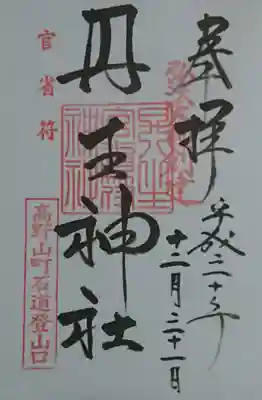 奉拝
弘法大師創建
平成二十年
十二月二十一日
丹生神社
官省符
高野山町石道登山口